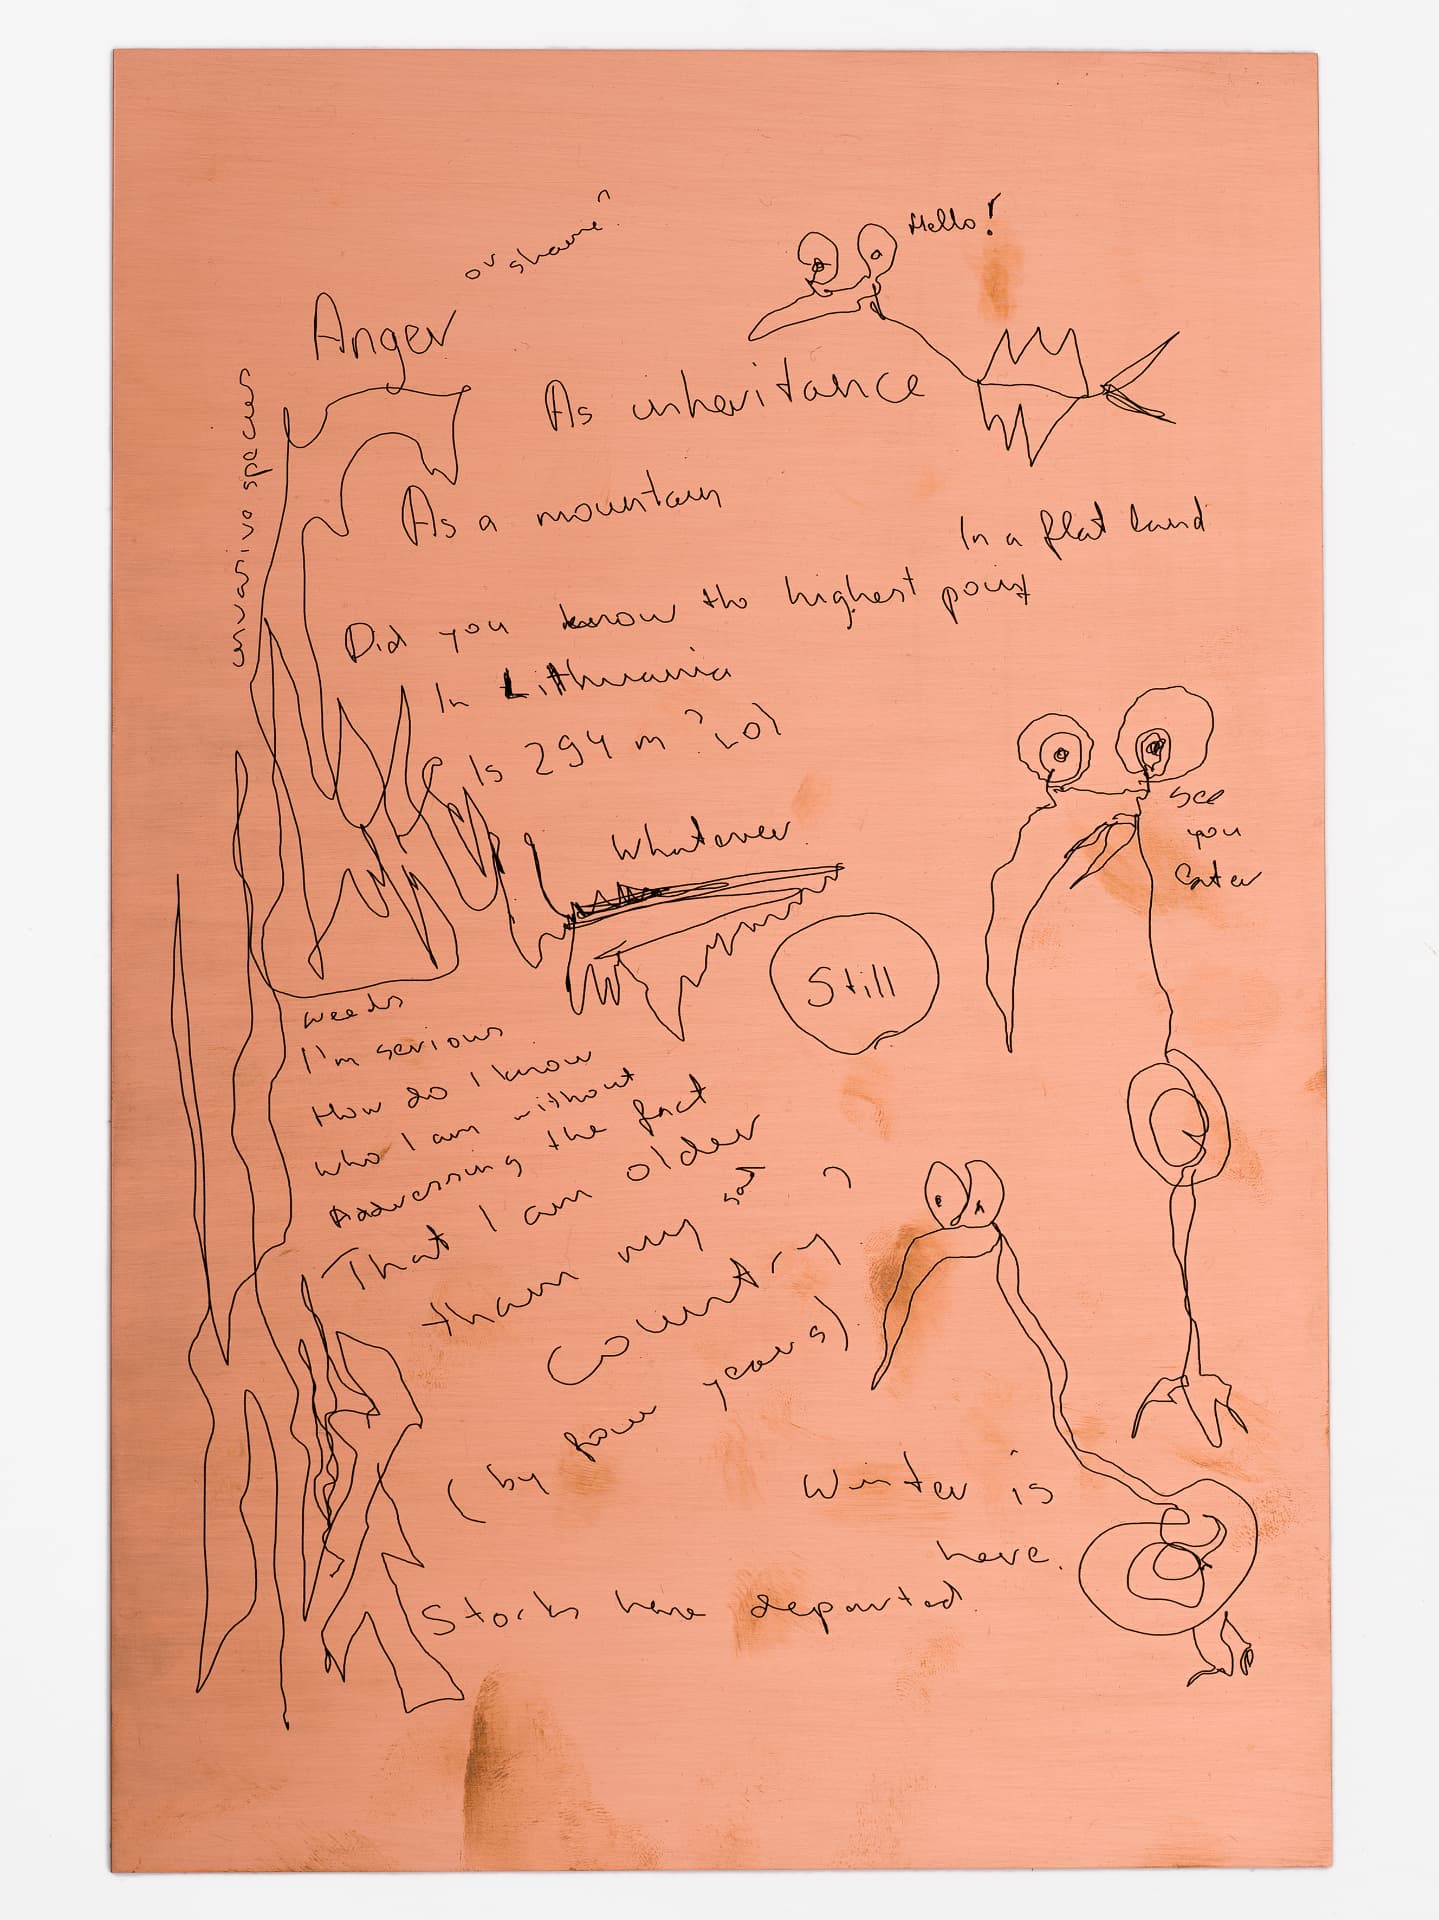 or shame?
Hello!
Anger
As inheritance
invasive species
As a mountain
In a flat land
Did you know the highest point
In Lithuania
Is 294 m? LOL
Whatever.
See
you
later
Still
weeds
I'm serious
How do I know
Who I am without
Addressing the fact
That I am older
than my sad
Country?
(by four years)
Winter is
here.
Storks have departed.